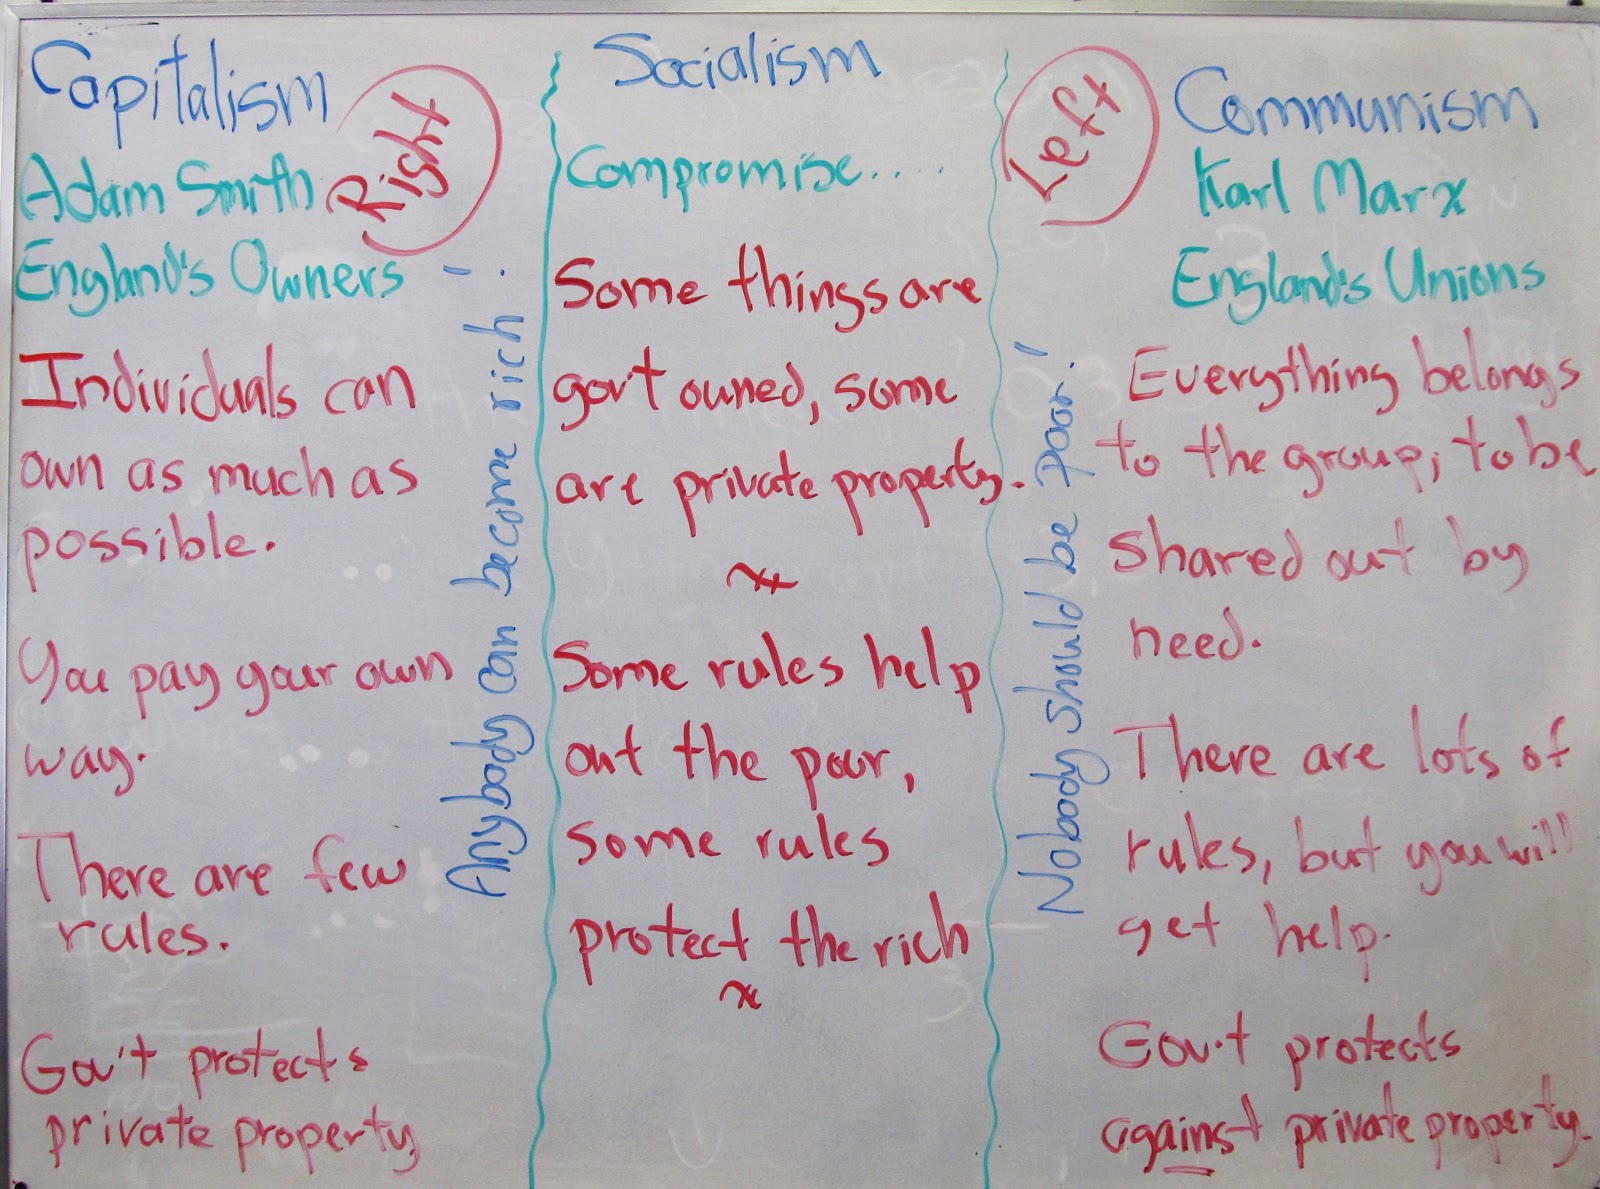 Capitalism
Right
Adam Smith
England's Owners
Individuals can
own as much as
possible.
You pay your own
way.
There are few
rules.
Gov't protects
private property
Anybody can become rich!
Socialism
Compromise....
Some things are
gov't owned, some
are private property.
Some rules help
out the poor,
some rules
protect the rich
Nobody should be poor!
Left
Communism
Karl Marx
England's Unions
Everything belongs
to the group, to be
shared out by
need.
There are lots of
rules, but you will
get help.
Gov't protects
against private property.